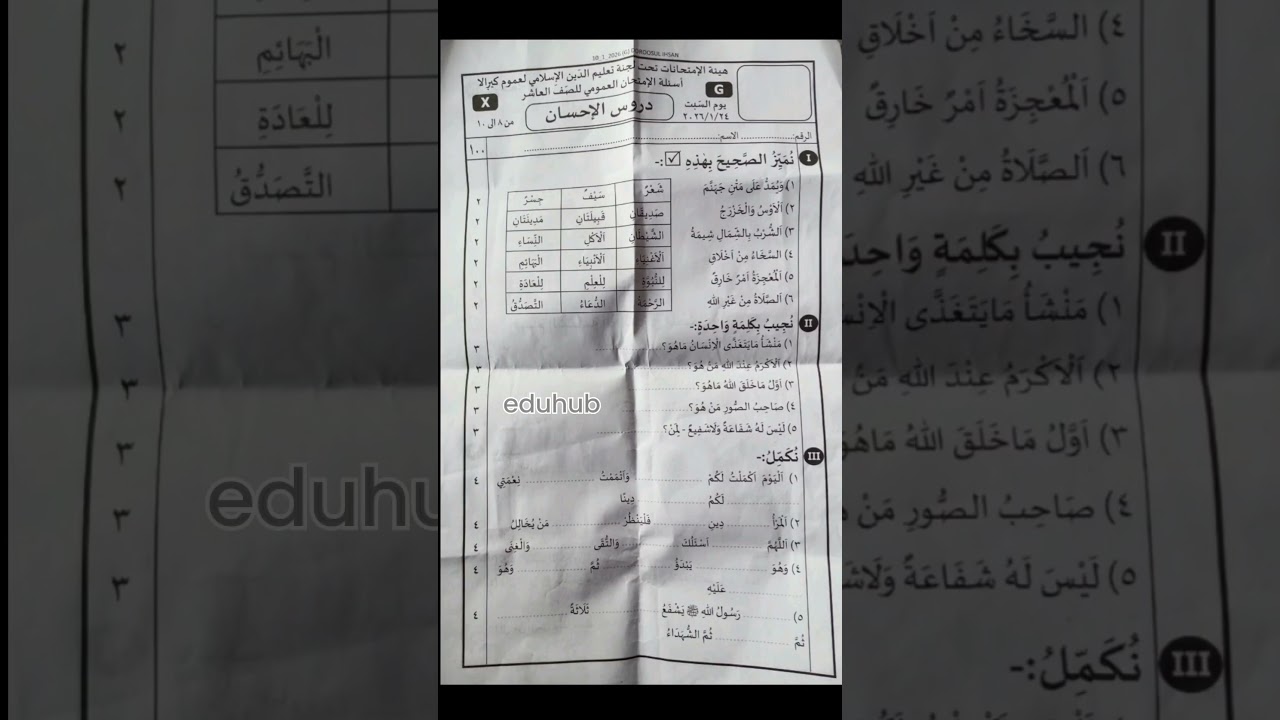 10_1_2026 (G) DOROOSUL IHSAN
هيئة الإمتحانات تحت لجنة تعليم الدين الإسلامي لعموم كيرالا
أسئلة الإمتحان العمومي للصف العاشر
G
X
دروس الإحسان
يوم السبت
٢٠٢٦/١/٢٤
من ٨ الى ١٠
الرقم: الاسم:
١٠٠
I نُمَيِّزُ الصَّحِيحَ بِهٰذِهِ ☑ :-
١) وَيُمَدُّ عَلَى مَتْنِ جَهَنَّمَ شَعْرٌ سَيْفٌ جِسْرٌ ٢
٢) اَلْأَوْسُ وَالْخَزْرَجُ صَدِيقَانِ قَبِيلَتَانِ مَدِينَتَانِ ٢
٣) اَلشُّرْبُ بِالشِّمَالِ شِيمَةُ الشَّيْطَانِ اَلْأَكْلِ النِّسَاءِ ٢
٤) السَّخَاءُ مِنْ اَخْلَاقِ اَلْأَغْنِيَاءِ اَلْأَنْبِيَاءِ الْبَهَائِمِ ٢
٥) اَلْمُعْجِزَةُ اَمْرٌ خَارِقٌ لِلنُّبُوَّةِ لِلْعِلْمِ لِلْعَادَةِ ٢
٦) اَلصَّلَاةُ مِنْ غَيْرِ اللهِ الرَّحْمَةُ الدُّعَاءُ التَّصَدُّقُ ٢
II نُجِيبُ بِكَلِمَةٍ وَاحِدَةٍ:-
١) مَنْشَأُ مَايَتَغَذَّى الْاِنْسَانُ مَاهُوَ؟ ٣
٢) اَلْاَكْرَمُ عِنْدَ اللهِ مَنْ هُوَ؟ ٣
٣) اَوَّلُ مَاخَلَقَ اللهُ مَاهُوَ؟ ٣
٤) صَاحِبُ الصُّورِ مَنْ هُوَ؟ ٣
٥) لَيْسَ لَهُ شَفَاعَةٌ وَلَاشَفِيعٌ - لِمَنْ؟ ٣
III نُكَمِّلُ:-
١) اَلْيَوْمَ اَكْمَلْتُ لَكُمْ وَاَتْمَمْتُ نِعْمَتِي ٤
لَكُمُ دِينًا
٢) اَلْمَرْأُ دِينِ فَلْيَنْظُرْ مَنْ يُخَالِلُ ٤
٣) اَللّٰهُمَّ اَسْئَلُكَ وَالتُّقَى وَالْغِنَى ٤
٤) وَهُوَ يَبْدَؤُ ثُمَّ وَهُوَ ٤
عَلَيْهِ
٥) رَسُولُ اللهِ ﷺ يَشْفَعُ ثَلَاثَةٌ ٤
ثُمَّ ثُمَّ الشُّهَدَاءُ
eduhub